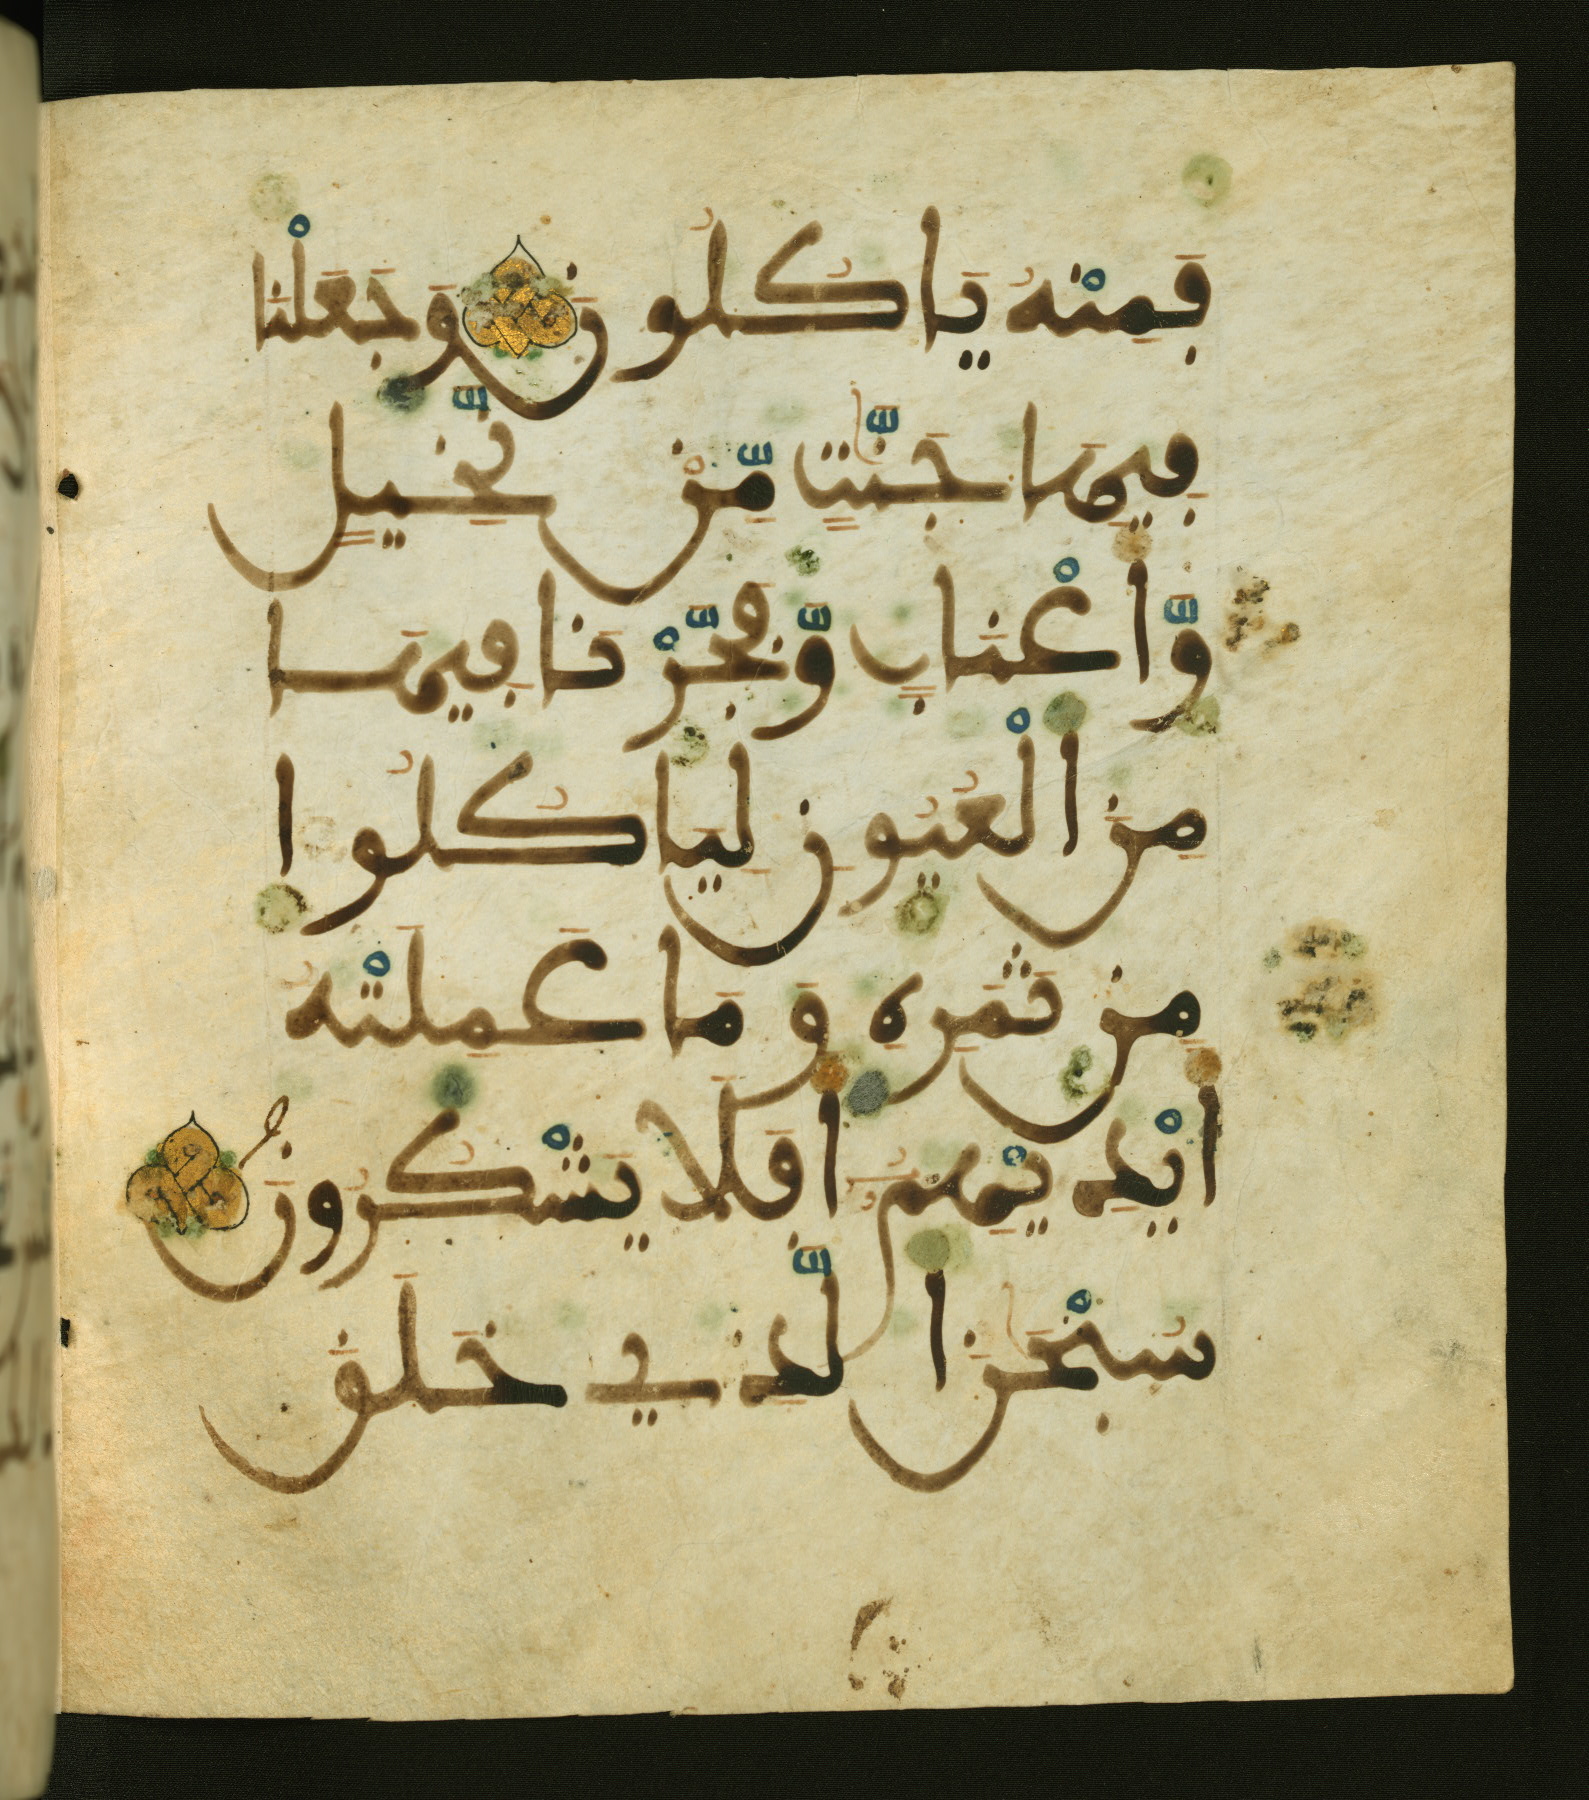 فَمِنْهُ يَاكُلُونَ وَجَعَلْنَا
فِيهَا جَنَّٰتٍ مِّنْ نَّخِيلٍ
وَّأَعْنَابٍ وَّفَجَّرْنَا فِيهَا
مِنَ الْعُيُونِ لِيَاكُلُوا
مِن ثَمَرِهِ وَمَا عَمِلَتْهُ
أَيْدِيهِمُ أَفَلَا يَشْكُرُونَ
سُبْحَٰنَ الَّذِي خَلَقَ